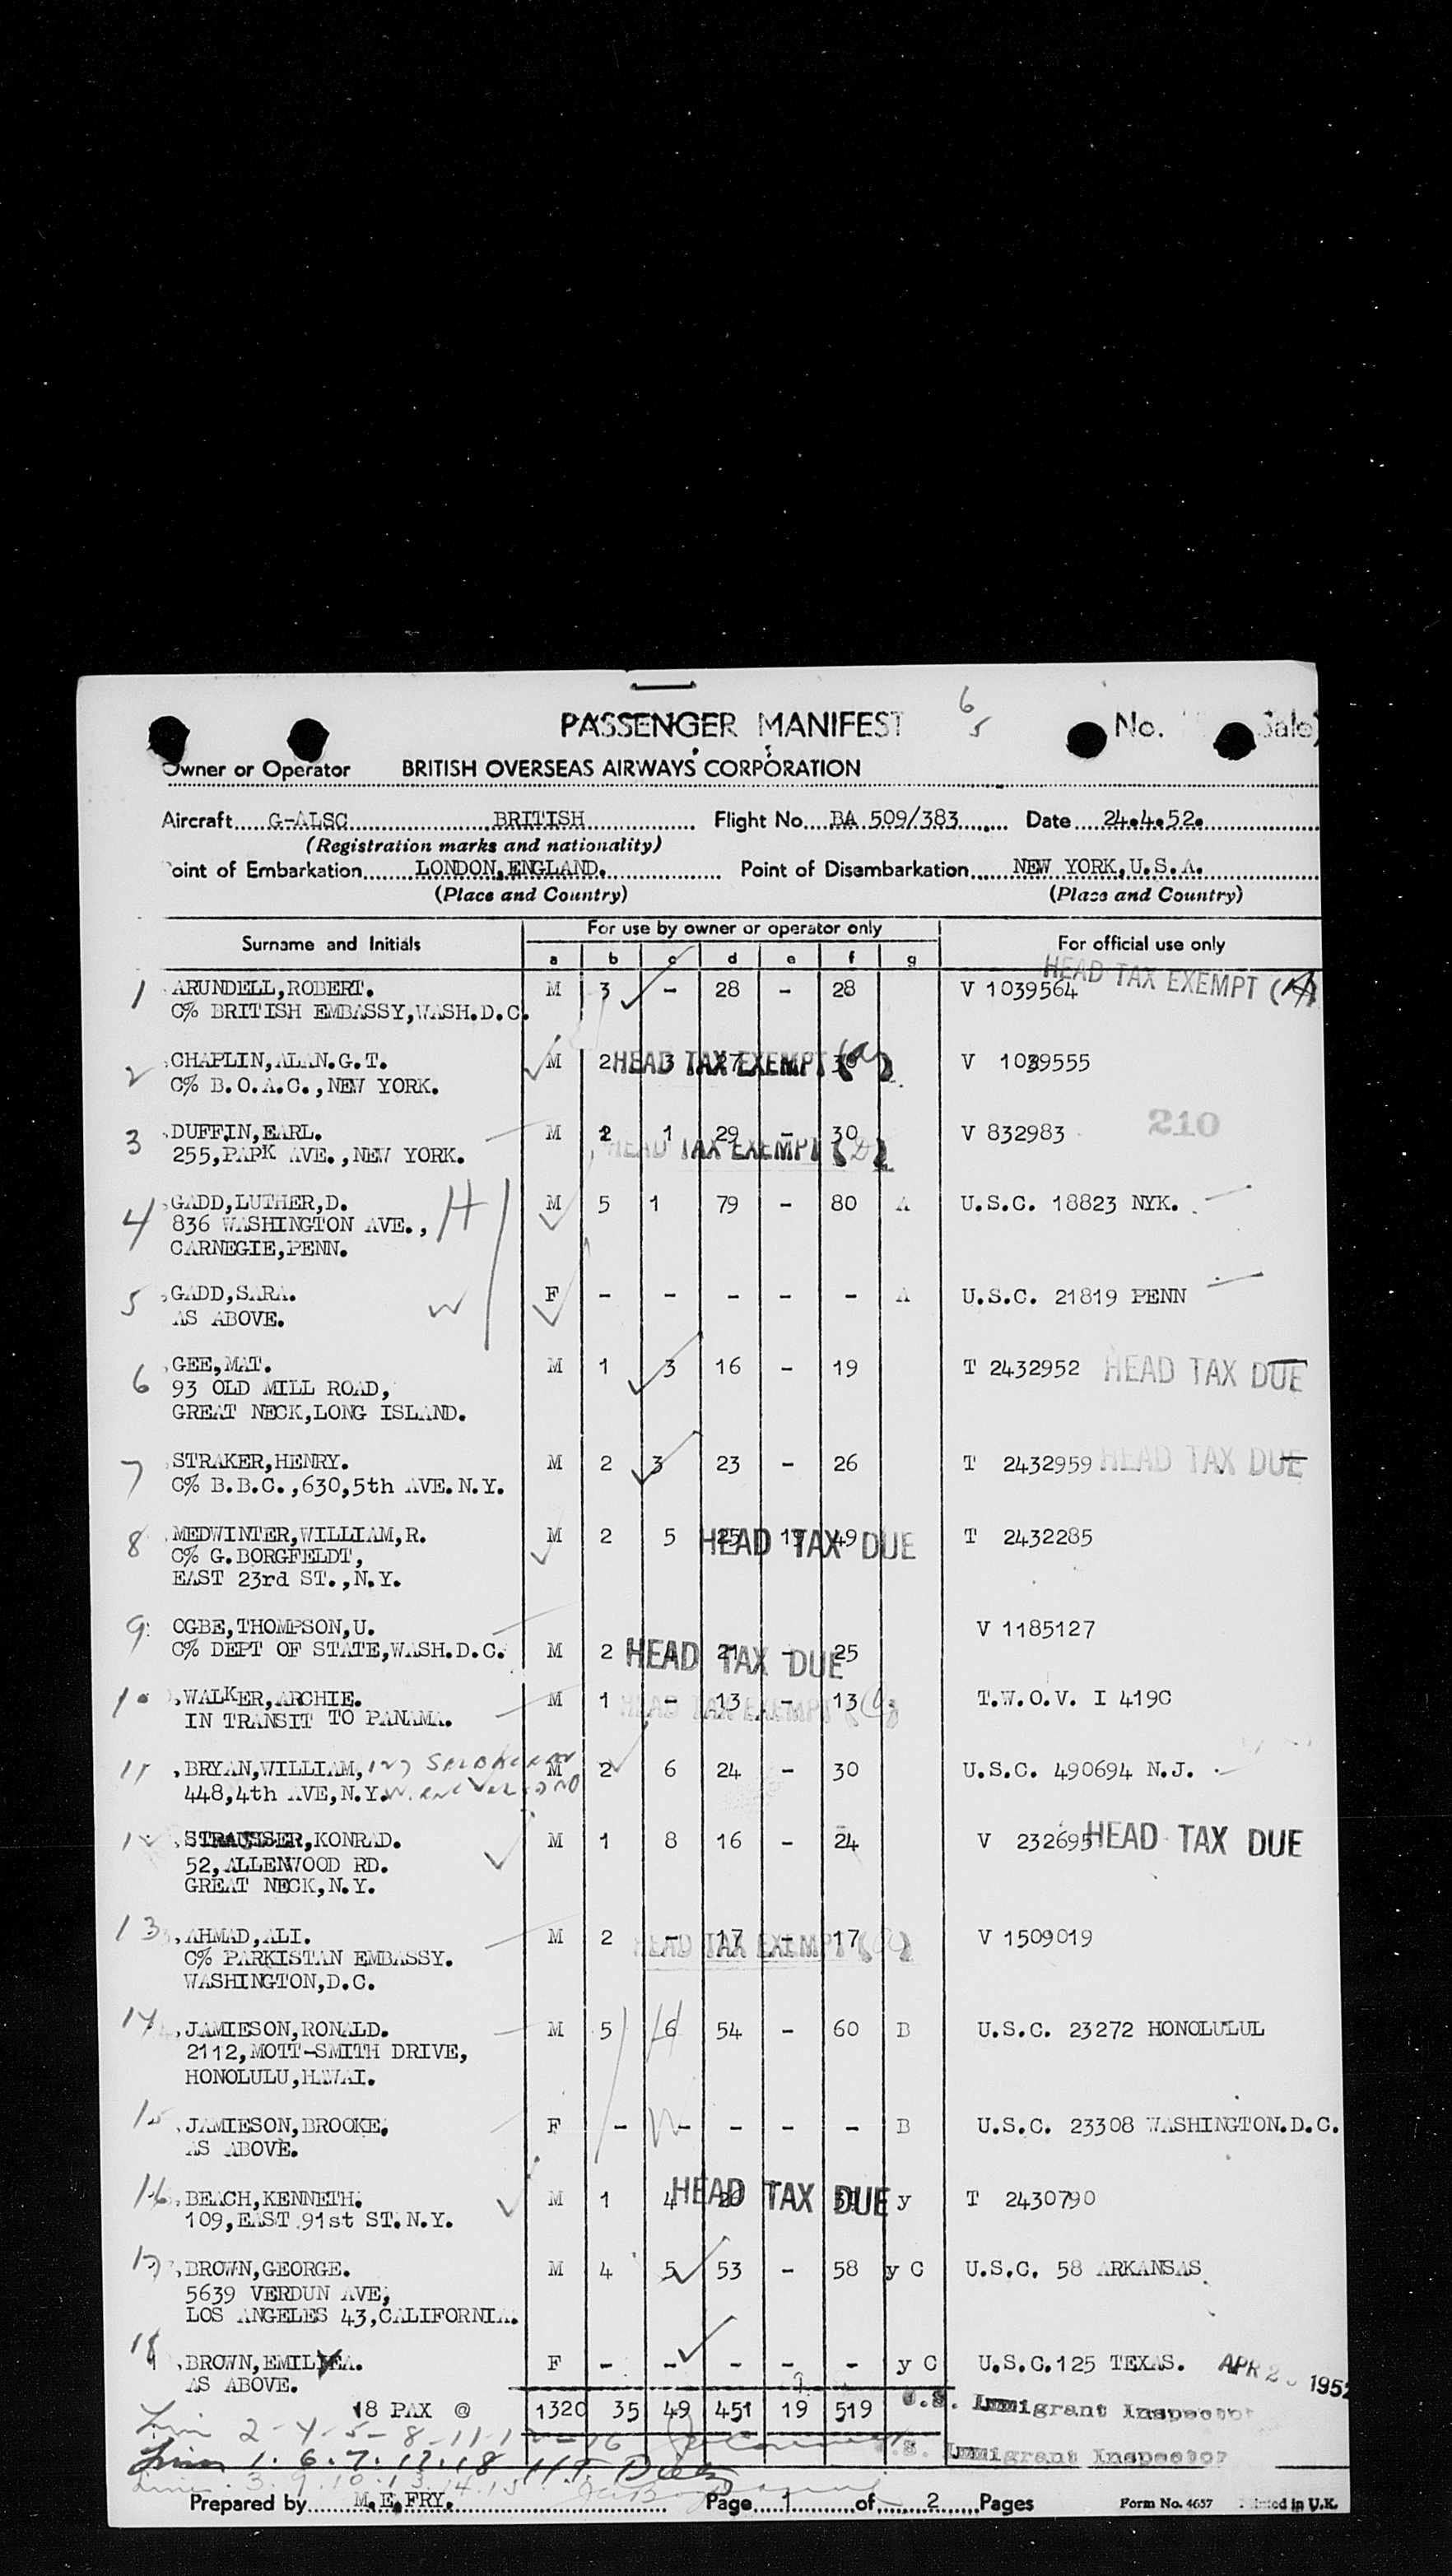 6
5
PASSENGER MANIFEST No.
Owner or Operator BRITISH OVERSEAS AIRWAYS CORPORATION
Aircraft G-ALSC BRITISH Flight No. BA 509/383 Date 24.4.52.
(Registration marks and nationality)
oint of Embarkation LONDON,ENGLAND. Point of Disembarkation NEW YORK,U.S.A.
(Place and Country) (Place and Country)
For use by owner or operator only
Surname and Initials For official use only
a b c d e f g
HEAD TAX EXEMPT (A)
1 ARUNDELL,ROBERT. M 3 - 28 - 28 V 1039564
C% BRITISH EMBASSY,WASH.D.C.
2 CHAPLIN,ALAN.G.T. M 2 3 27 - 30 V 1039555
HEAD TAX EXEMPT (a)
C% B.O.A.C.,NEW YORK.
3 DUFFIN,EARL. M 2 1 29 - 30 V 832983 210
255,PARK AVE.,NEW YORK. HEAD TAX EXEMPT
4 GADD,LUTHER,D. H M 5 1 79 - 80 A U.S.C. 18823 NYK.
836 WASHINGTON AVE.,
CARNEGIE,PENN.
5 GADD,SARA. W F - - - - - A U.S.C. 21819 PENN
AS ABOVE.
6 GEE,MAT. M 1 3 16 - 19 T 2432952 HEAD TAX DUE
93 OLD MILL ROAD,
GREAT NECK,LONG ISLAND.
7 STRAKER,HENRY. M 2 3 23 - 26 T 2432959 HEAD TAX DUE
C% B.B.C.,630,5th AVE.N.Y.
8 MEDWINTER,WILLIAM,R. M 2 5 25 19 49 T 2432285
HEAD TAX DUE
C% G.BORGFELDT,
EAST 23rd ST.,N.Y.
9 OGBE,THOMPSON,U. V 1185127
C% DEPT OF STATE,WASH.D.C. M 2 4 21 - 25
HEAD TAX DUE
10 WALKER,ARCHIE. M 1 - 13 - 13 T.W.O.V. I 419C
IN TRANSIT TO PANAMA. HEAD TAX EXEMPT
11 BRYAN,WILLIAM, 127 M 2 6 24 - 30 U.S.C. 490694 N.J.
448,4th AVE,N.Y.
12 STRAUSSER,KONRAD. M 1 8 16 - 24 V 232695 HEAD TAX DUE
52,ALLENWOOD RD.
GREAT NECK,N.Y.
13 AHMAD,ALI. M 2 - 17 - 17 V 1509019
HEAD TAX EXEMPT
C% PARKISTAN EMBASSY.
WASHINGTON,D.C.
14 JAMIESON,RONALD. M 5 H 6 54 - 60 B U.S.C. 23272 HONOLULUL
2112,MOTT-SMITH DRIVE,
HONOLULU,HAWAI.
15 JAMIESON,BROOKE. F - W - - - - B U.S.C. 23308 WASHINGTON.D.C.
AS ABOVE.
16 BEACH,KENNETH. M 1 4 y T 2430790
HEAD TAX DUE
109,EAST 91st ST.N.Y.
17 BROWN,GEORGE. M 4 5 53 - 58 y C U.S.C. 58 ARKANSAS
5639 VERDUN AVE,
LOS ANGELES 43,CALIFORNIA.
18 BROWN,EMILYEA. F - - - - - y C U.S.C.125 TEXAS. APR 1952
AS ABOVE.
18 PAX @ 1320 35 49 451 19 519 U.S. Immigrant Inspector
2-4-5-8-11-12-16
U.S. Immigrant Inspector
1.6.7.17.18
3.9.10.13.14.15
Prepared by M.E.FRY. Page 1 of 2 Pages Form No. 4657 in U.K.